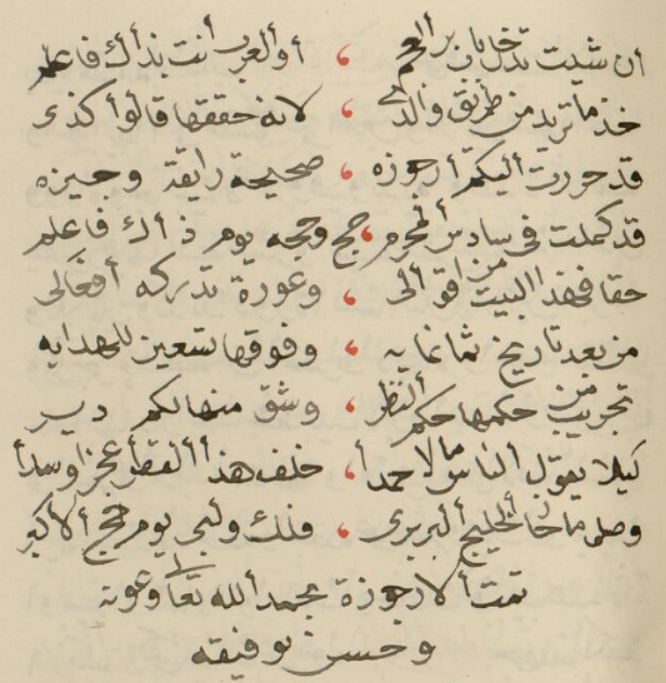 أن شيت تدخل باب بر ألعجم ، أو ألعرب أنت بذأك فاعلم
خذ ما تريد من طريق وألذي ، لانه حققتها قالوأ كذى
قد حررت أليكم أرجوزه ، صحيحة رايقة وجيزه
قد كملت في سادس ألمحرم ، حج وحجه يوم ذأك فاعلم
حقا فهذا البيت من اقوألى ، وعورة تدركه أفعالى
من بعد تاريخ ثمانمايه ، وفوقها تسعين للهدايه
تجريب من حكمها حكم ألنظر ، وشق منها لكم
كيلا يقول ألناس مالاحمدأ ، خلف هذأ ألفقر عجزأ وسدأ
وصلى ما ألخليج ألبربرى ، فلك ولبى يوم حج ألاكبر
تمت ألارجوزة بحمد ألله تعالى وعونه
وحسن توفيقه